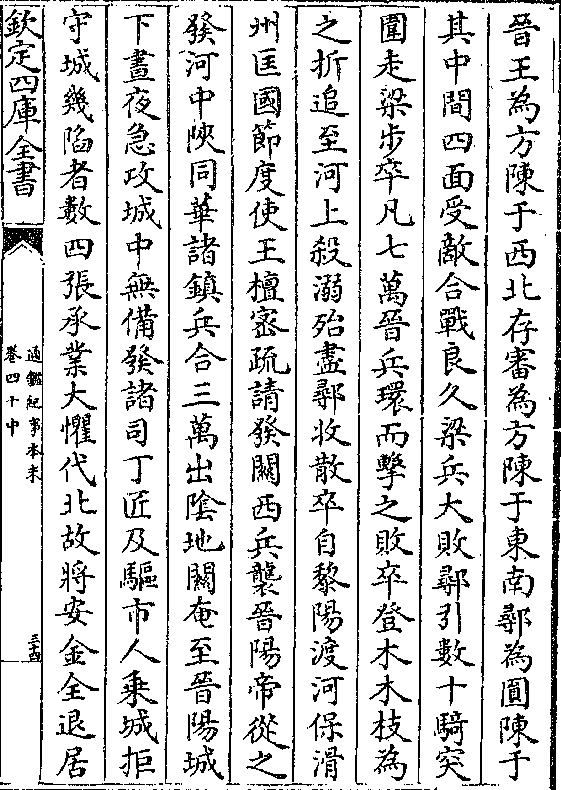 晉王為方陳于西北存審為方陳于東南鄩為圓陳于
其中間四面受敵合戰良久梁兵大敗鄩引數十騎突
圍走梁步卒凡七萬晉兵環而擊之敗卒登木木枝為
之折追至河上殺溺殆盡鄩收散卒自黎陽渡河保滑
州匡國節度使王檀宻疏請發關西兵襲晉陽帝從之
發河中陜同華諸鎮兵合三萬出隂地關奄至晉陽城
下晝夜急攻城中無備發諸司丁匠及驅市人乗城拒
守城幾陷者數四張承業大懼代北故將安金全退居
欽定四庫全書
通鑑紀事本末
卷四十中
三十四